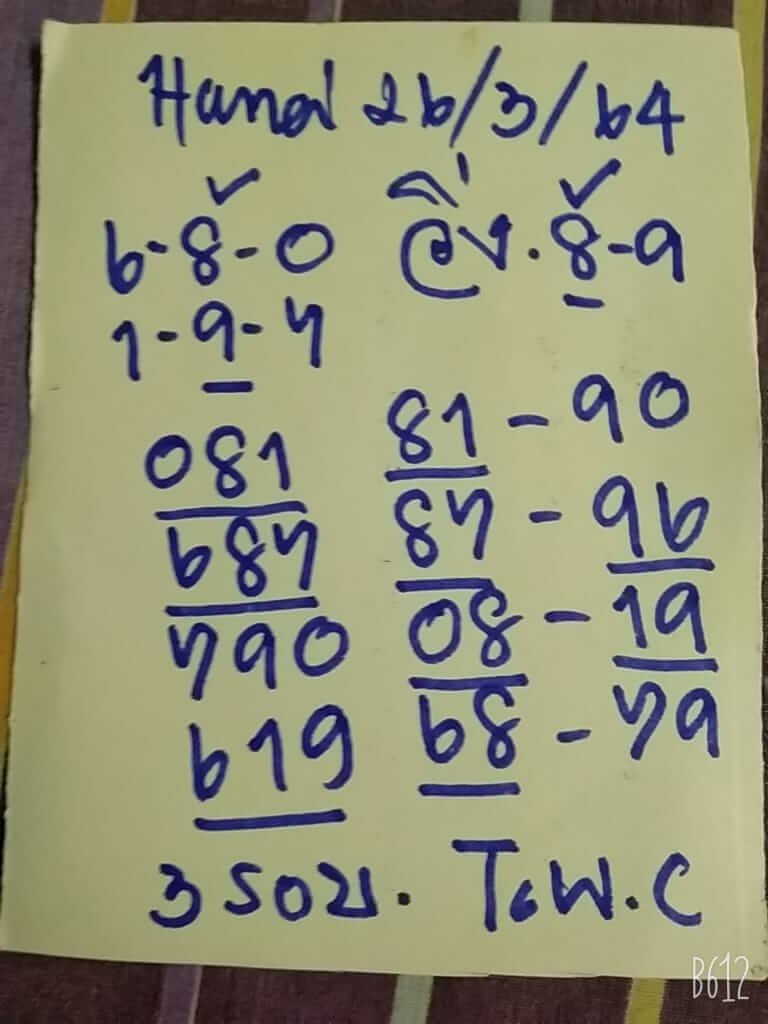 Hanoi 26/3/64
6-8-0 วิ่ง. 8-9
1-9-7
081
687
790
619
81-90
87-96
08-19
68-79
3 รอบ. T.W.C
B612